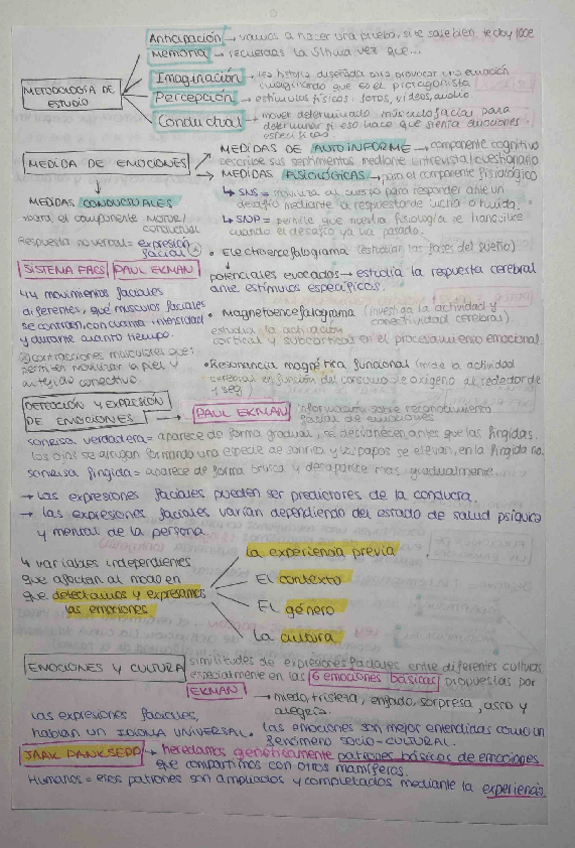 Anticipación → vamos a hacer una prueba, si te sale bien, te doy 100€
Memoria → recuerdas la última vez que...
METODOLOGÍA DE
ESTUDIO
Imaginación → les historia diseñada para provocar una emoción
imaginando que es el protagonista
Percepción → estímulos físicos. fotos, vídeos, audio.
Conductual → mover determinado músculo facial para
determinar si eso hace que sienta emociones
específicas.
MEDIDA DE EMOCIONES
MEDIDAS DE AUTOINFORME → componente cognitivo
describe sus sentimientos mediante entrevista/cuestionario
MEDIDAS FISIOLÓGICAS → para el componente fisiológico
↳ SNS = moviliza al cuerpo para responder ante un
desafío mediante la respuesta de lucha o huida.
↳ SNP = permite que nuestra fisiología se tranquilice
cuando el desafío ya ha pasado.
MEDIDAS CONDUCTUALES
para el componente motor/
conductual
Respuesta no verbal = expresión
facial
SISTEMA FACS PAUL EKMAN
44 movimientos faciales
diferentes, qué músculos faciales
se contraen, con cuanta intensidad
y durante cuanto tiempo.
contracciones musculares que
permiten movilizar la piel y
el tejido conectivo.
• Electroencefalograma (estudiar las fases del sueño)
potenciales evocados → estudia la respuesta cerebral
ante estímulos específicos.
• Magnetoencefalograma (investiga la actividad y
conectividad cerebral)
estudia la activación
cortical y subcortical en el procesamiento emocional
• Resonancia magnética funcional (mide la actividad
cerebral en función del consumo de oxígeno alrededor de
1 seg)
DETECCIÓN Y EXPRESIÓN
DE EMOCIONES → PAUL EKMAN información sobre reconocimiento
facial de emociones
sonrisa verdadera = aparece de forma gradual, se desvanecen antes que las fingidas.
los ojos se arrugan formando una especie de sonrisa y los papos se elevan, en la fingida no.
sonrisa fingida = aparece de forma brusca y desaparece más gradualmente.
→ Las expresiones faciales pueden ser predictores de la conducta.
→ las expresiones faciales varían dependiendo del estado de salud psíquica
y mental de la persona.
4 variables independientes
que afectan al modo en
que detectamos y expresamos
las emociones
La experiencia previa
El contexto
El género
La cultura
EMOCIONES Y CULTURA similitudes de expresiones faciales entre diferentes culturas
especialmente en las 6 emociones básicas propuestas por
EKMAN → miedo, tristeza, enfado, sorpresa, asco y
alegría.
Las expresiones faciales,
hablan un IDIOMA UNIVERSAL. Las emociones son mejor entendidas como un
fenómeno SOCIO-CULTURAL.
JAAK PANKSEPP → heredamos genéticamente patrones básicos de emociones
que compartimos con otros mamíferos.
Humanos = esos patrones son ampliados y completados mediante la experiencia.